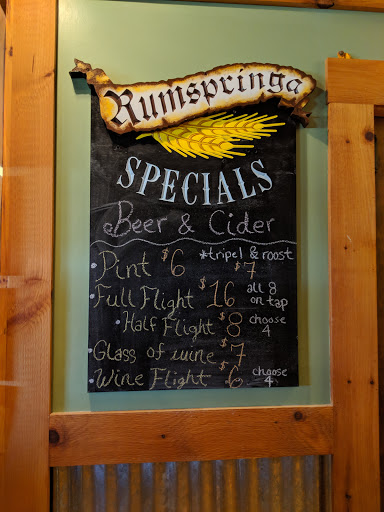 Rumspringa
SPECIALS
Beer & Cider
• Pint $6 *tripel & roost $7
• Full Flight $16 all 8 on tap
• Half Flight $8 choose 4
• Glass of wine $7
• Wine Flight $6 choose 4